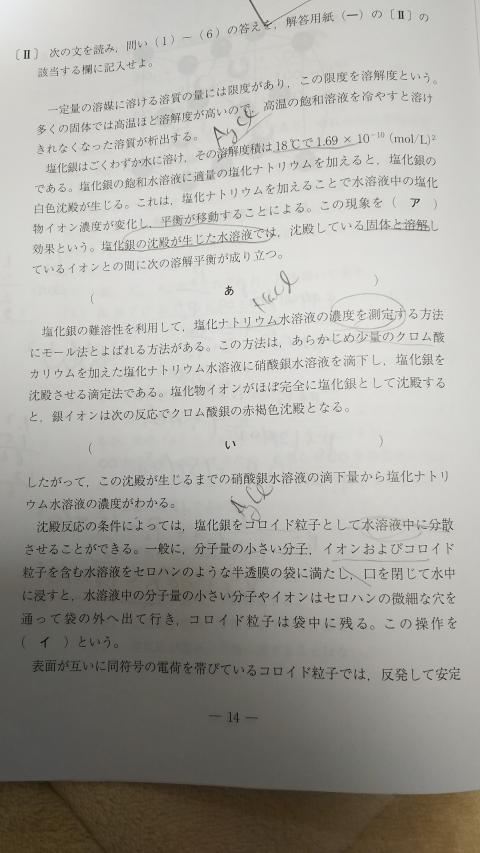 〔Ⅱ〕 次の文を読み，問い（1）－（6）の答えを，解答用紙（一）の〔Ⅱ〕の
該当する欄に記入せよ。
一定量の溶媒に溶ける溶質の量には限度があり，この限度を溶解度という。
多くの固体では高温ほど溶解度が高いので，高温の飽和溶液を冷やすと溶け
きれなくなった溶質が析出する。
AgCl
塩化銀はごくわずか水に溶け，その溶解度積は18℃で1.69 × 10⁻¹⁰ (mol/L)²
である。塩化銀の飽和水溶液に適量の塩化ナトリウムを加えると，塩化銀の
白色沈殿が生じる。これは，塩化ナトリウムを加えることで水溶液中の塩化
物イオン濃度が変化し，平衡が移動することによる。この現象を（ ア ）
効果という。塩化銀の沈殿が生じた水溶液では，沈殿している固体と溶解し
ているイオンとの間に次の溶解平衡が成り立つ。
（ あ ）
NaCl
塩化銀の難溶性を利用して，塩化ナトリウム水溶液の濃度を測定する方法
にモール法とよばれる方法がある。この方法は，あらかじめ少量のクロム酸
カリウムを加えた塩化ナトリウム水溶液に硝酸銀水溶液を滴下し，塩化銀を
沈殿させる滴定法である。塩化物イオンがほぼ完全に塩化銀として沈殿する
と，銀イオンは次の反応でクロム酸銀の赤褐色沈殿となる。
（ い ）
したがって，この沈殿が生じるまでの硝酸銀水溶液の滴下量から塩化ナトリ
ウム水溶液の濃度がわかる。
AgCl
沈殿反応の条件によっては，塩化銀をコロイド粒子として水溶液中に分散
させることができる。一般に，分子量の小さい分子，イオンおよびコロイド
粒子を含む水溶液をセロハンのような半透膜の袋に満たし，口を閉じて水中
に浸すと，水溶液中の分子量の小さい分子やイオンはセロハンの微細な穴を
通って袋の外へ出て行き，コロイド粒子は袋中に残る。この操作を
（ イ ）という。
表面が互いに同符号の電荷を帯びているコロイド粒子では，反発して安定
— 14 —